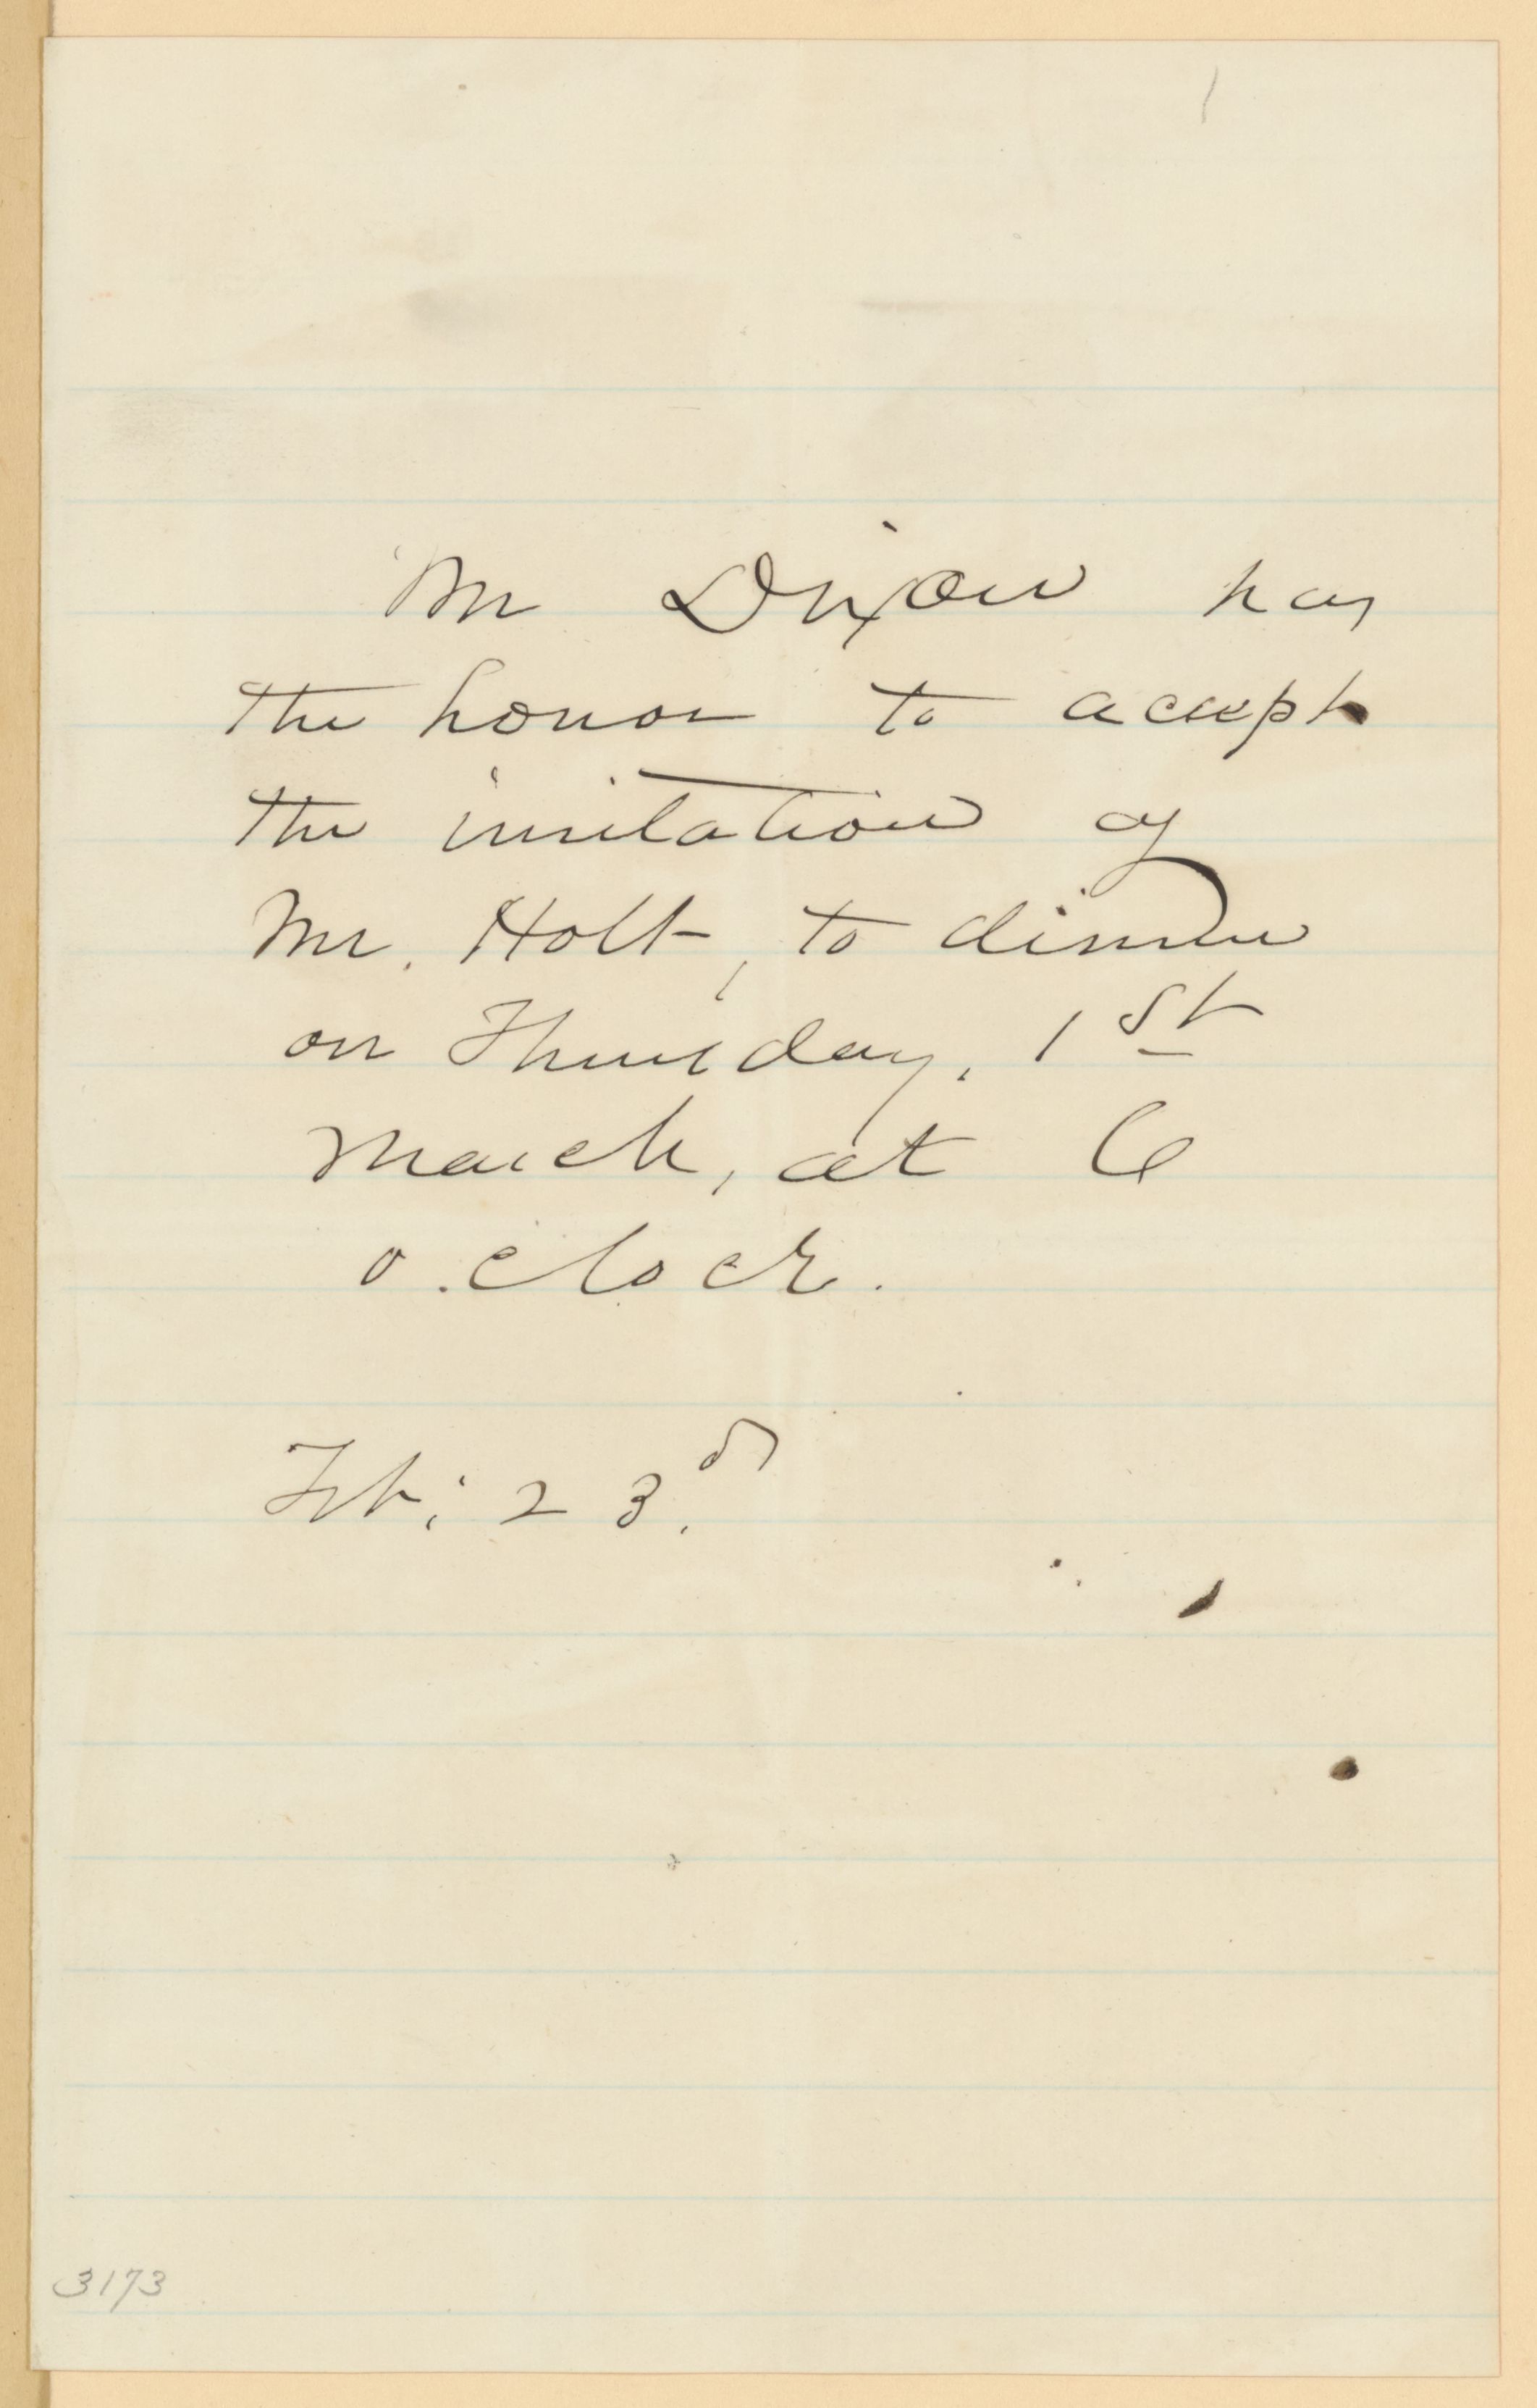 Mr Dixon has
the honor to accept
the invitation of
Mr. Holt, to dinner
on Thursday, 1st
March, at 6
o.clock.
Feb; 23,d
3173